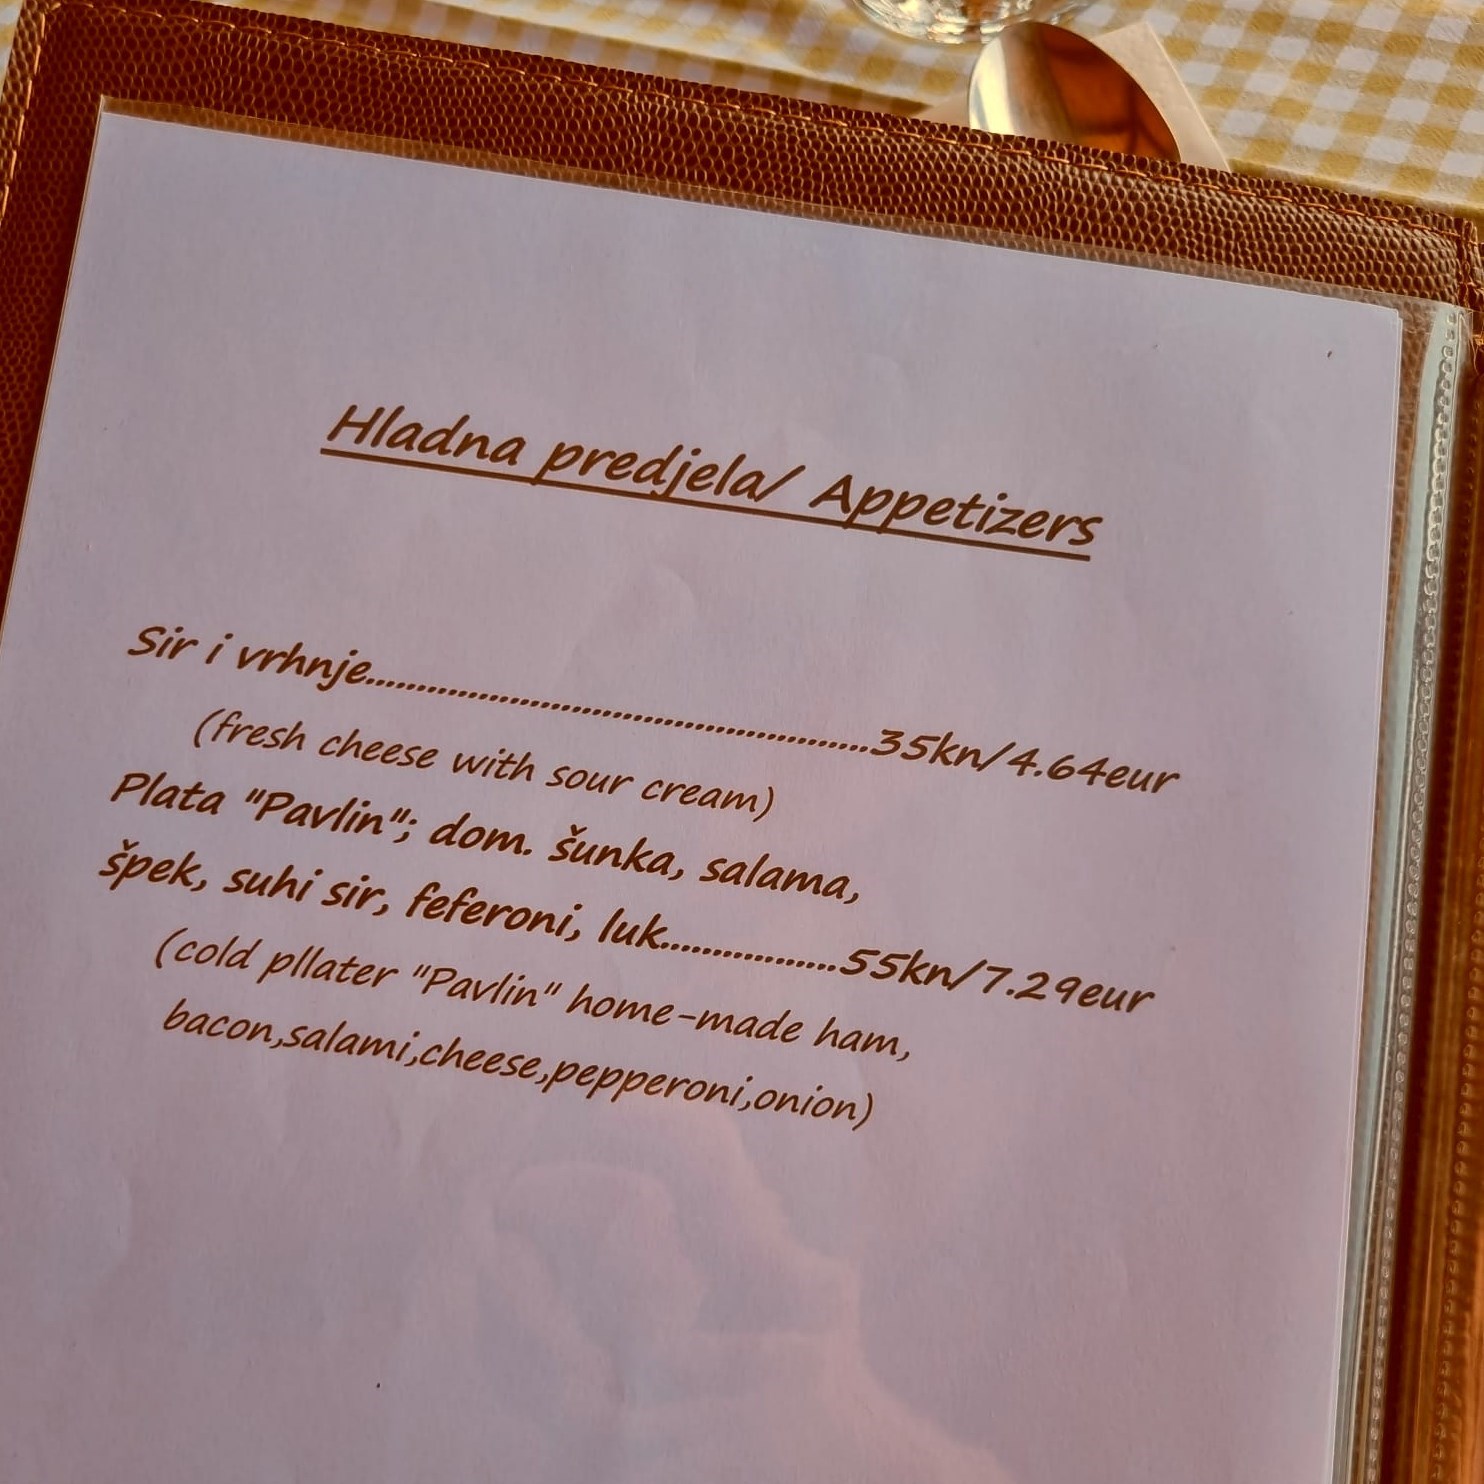 Hladna predjela/ Appetizers
Sir i vrhnje..................................................35kn/4.64eur
(fresh cheese with sour cream)
Plata "Pavlin"; dom. šunka, salama,
špek, suhi sir, feferoni, luk.................55kn/7.29eur
(cold pllater "Pavlin" home-made ham,
bacon,salami,cheese,pepperoni,onion)